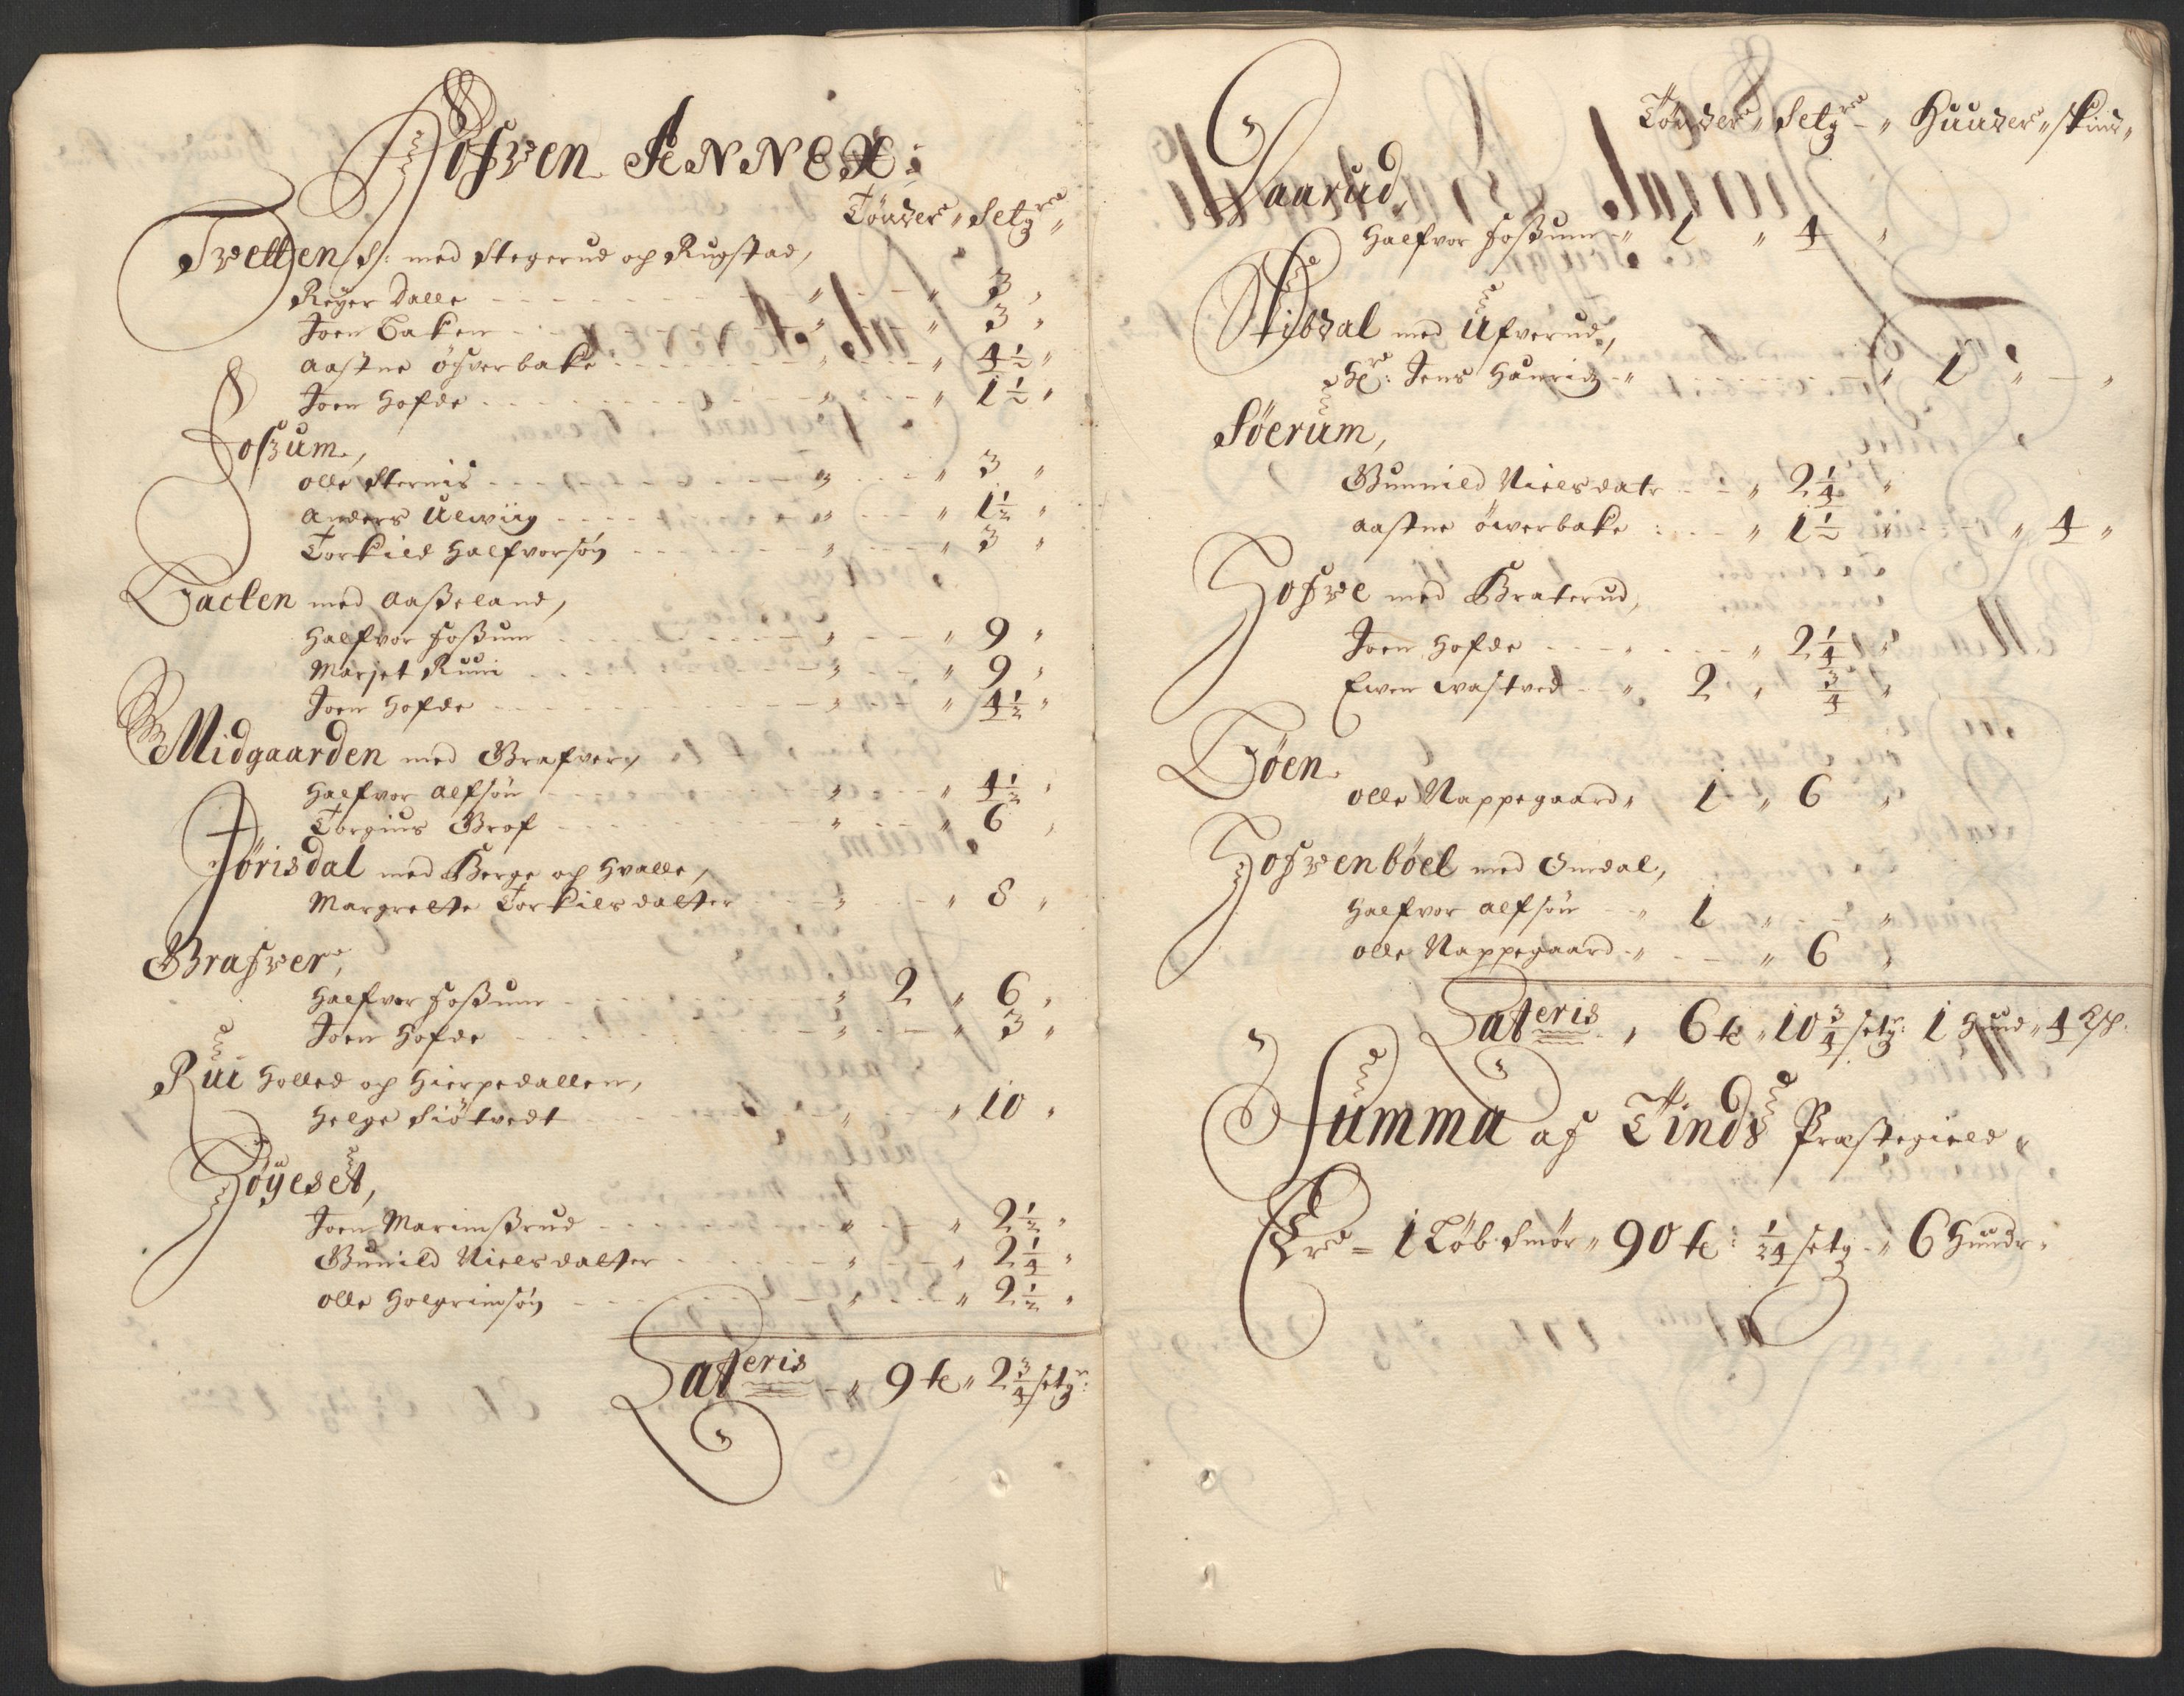 Hofven ANNEX:
Tönder " Setgr "
Tvetten S: med Stegerud och Rugstad,
Reyer Dalle - - - " - - " 3 "
Joen Baken - - - " - - " 3 "
Aastne öfverbake - - - " - - " 4½ "
Joen Hofde - - - " - - " 1½ "
Fossum,
Olle Sternis - - - " - - " 3 "
Anders Ulewiig - - - " - - " 1½ "
Torkild Halfvorsøn - - - " - - " 3 "
Backen med Aasseland,
Halfvor Fossum - - - " - - " 9 "
Marjet Ruui - - - " - - " 9 "
Joen Hofde - - - " - - " 4½ "
Midgaarden med Grafver,
Halfvor Alfsøn - - - " - - " 4½ "
Torgius Graf - - - " - - " 6 "
Jörisdal med Berge och Hvalle,
Margrette Torkilsdatter - - - " - - " 8 "
Grafver,
Halfvor Fossum - - - " 2 " 6 "
Joen Hofde - - - " - - " 3 "
Rui Holled och Hierpedallen,
Helge Siötvedt - - - " - - " 10 "
Höyeset,
Joen Marumsrud - - - " - - " 2½ "
Gunild Nielsdatter - - - " - - " 2¼ "
Olle Holgrimsøn - - - " - - " 2½ "
Lateris - " 9 te " 2¾ setgr:
Tönder " Setgr - " Huuder " skind "
Baarud,
Halfvor Fossum - " 1 " 4 "
Stibdal med Ufverud,
Hr: Jens Hanrich - " - - - " 1 " - "
Söerum,
Gunnild Nielsdatr - - " 2¼ "
Aastne öwerbake : - - " 1½ - - " 4 "
Hofve med Braterud,
Joen Hofde - - - " 2¼ "
Ewen Wastved - " 2 " ¾ "
Böen
Olle Nappegaard " 1 " 6 "
Hofvenböel med Omdal,
Halfvor Alfsøn - " 1 " - - "
Olle Nappegaard - " - - " 6 "
Lateris " 6 te " 10¾ setgr: 1 Huud " 4 Skh:
Summa af Tinds Præstegield
Er = 1 Löb Smör " 90 te: 1/24 setg - " 6 Huudr "